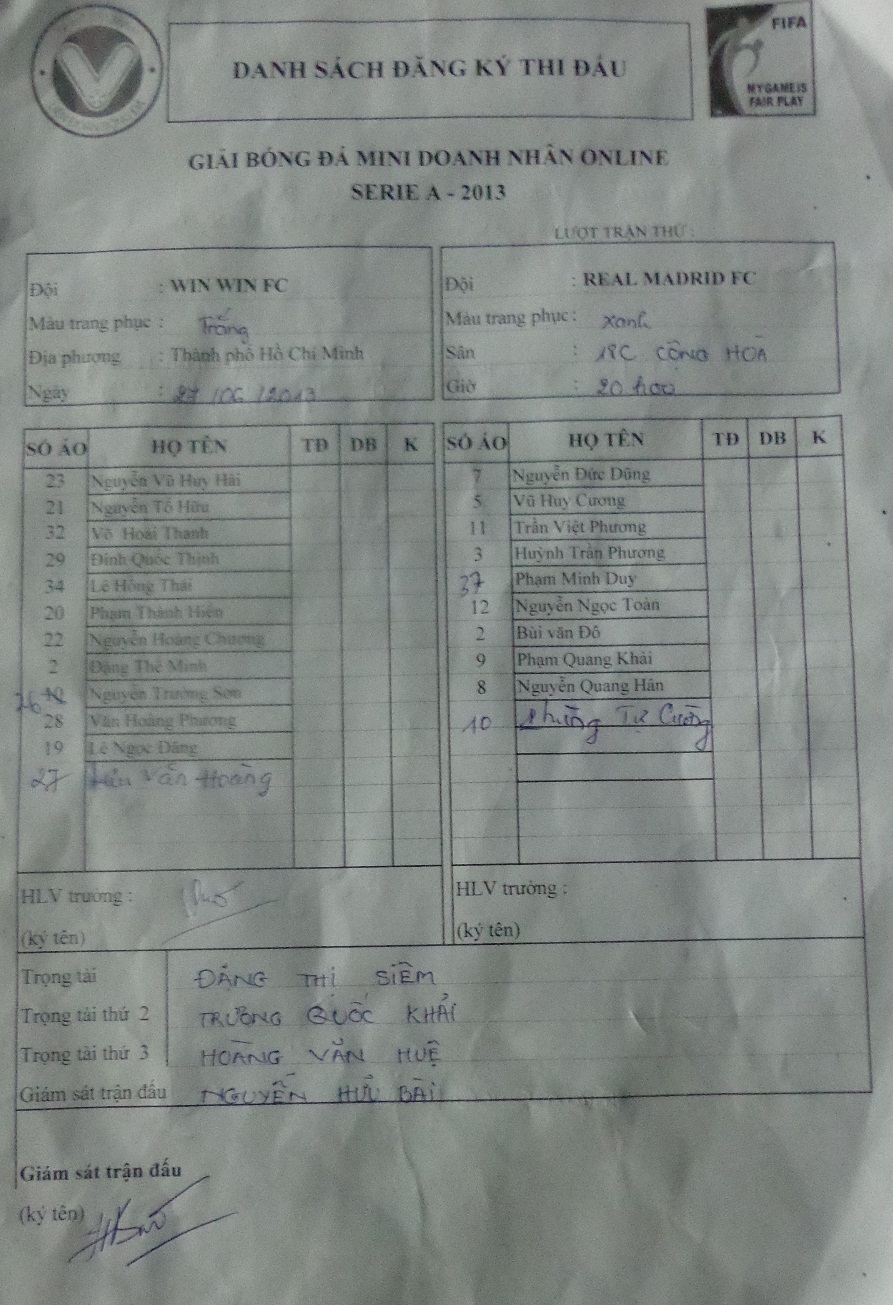 FIFA
MY GAME IS
FAIR PLAY
DANH SÁCH ĐĂNG KÝ THI ĐẤU
GIẢI BÓNG ĐÁ MINI DOANH NHÂN ONLINE
SERIE A - 2013
LƯỢT TRẬN THỨ :
Đội : WIN WIN FC
Màu trang phục : Trắng
Địa phương : Thành phố Hồ Chí Minh
Ngày : 27/06/2013
Đội : REAL MADRID FC
Màu trang phục : Xanh
Sân : 18C CỘNG HÒA
Giờ : 20 h00
SỐ ÁO HỌ TÊN TĐ DB K
23 Nguyễn Vũ Huy Hải
21 Nguyễn Tố Hữu
32 Võ Hoài Thanh
29 Đinh Quốc Thịnh
34 Lê Hồng Thái
20 Phạm Thành Hiền
22 Nguyễn Hoàng Chương
2 Đặng Thế Minh
Nguyễn Trường Sơn
28 Văn Hoàng Phương
19 Lê Ngọc Đăng
27 Văn Hoàng
SỐ ÁO HỌ TÊN TĐ DB K
7 Nguyễn Đức Dũng
5 Vũ Huy Cương
11 Trần Việt Phương
3 Huỳnh Trần Phương
37 Phạm Minh Duy
12 Nguyễn Ngọc Toàn
2 Bùi văn Đô
9 Phạm Quang Khải
8 Nguyễn Quang Hân
10 Phùng Tự Cường
HLV trưởng :
(ký tên)
HLV trưởng :
(ký tên)
Trọng tài ĐẶNG THỊ SIÊM
Trọng tài thứ 2 TRƯƠNG QUỐC KHẢI
Trọng tài thứ 3 HOÀNG VĂN HUỆ
Giám sát trận đấu NGUYỄN HỮU BÀI
Giám sát trận đấu
(ký tên)